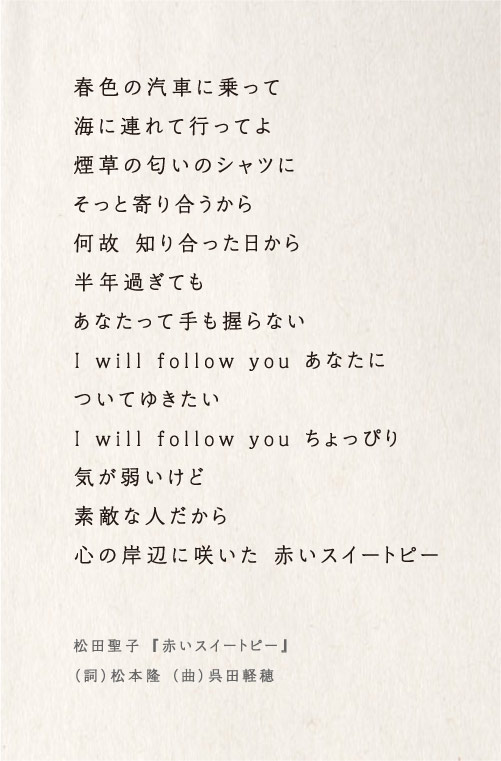 春色の汽車に乗って
海に連れて行ってよ
煙草の匂いのシャツに
そっと寄り合うから
何故 知り合った日から
半年過ぎても
あなたって手も握らない
I will follow you あなたに
ついてゆきたい
I will follow you ちょっぴり
気が弱いけど
素敵な人だから
心の岸辺に咲いた 赤いスイートピー
松田聖子『赤いスイートピー』
（詞）松本隆 （曲）呉田軽穂